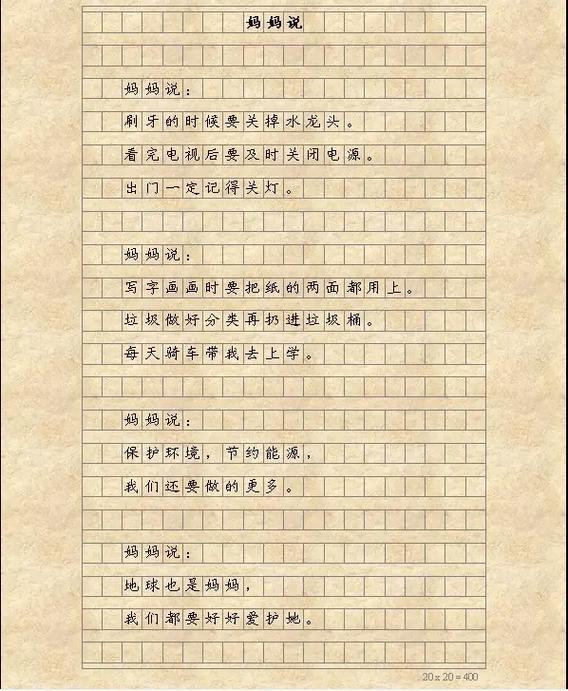 妈妈说
妈妈说：
刷牙的时候要关掉水龙头。
看完电视后要及时关闭电源。
出门一定记得关灯。
妈妈说：
写字画画时要把纸的两面都用上。
垃圾做好分类再扔进垃圾桶。
每天骑车带我去上学。
妈妈说：
保护环境，节约能源，
我们还要做的更多。
妈妈说：
地球也是妈妈，
我们都要好好爱护她。
20 x 20 = 400